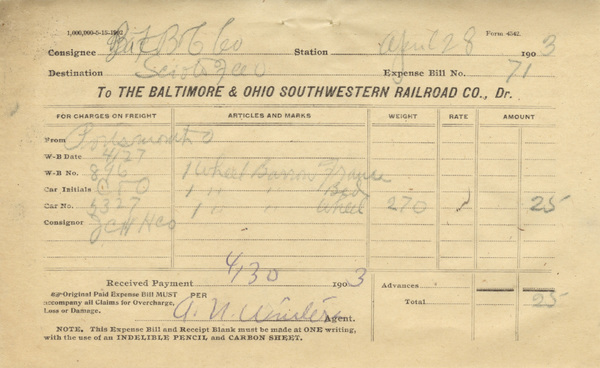 1,000,000-5-15-1902
Form 4542.
Consignee
Station April 28 1903
Destination
Expense Bill No. 71
To THE BALTIMORE & OHIO SOUTHWESTERN RAILROAD CO., Dr.
FOR CHARGES ON FREIGHT ARTICLES AND MARKS WEIGHT RATE AMOUNT
From Portsmouth O
W-B Date 4/27
W-B No. 896 1 Wheel Barrow Frame
Car Initials 1 " " Bed
Car No. 1 " " Wheel 270 25
Consignor
Received Payment 4/30 1903
Advances
Original Paid Expense Bill MUST accompany all Claims for Overcharge, Loss or Damage.
PER
Agent.
Total 25
NOTE. This Expense Bill and Receipt Blank must be made at ONE writing,
with the use of an INDELIBLE PENCIL and CARBON SHEET.